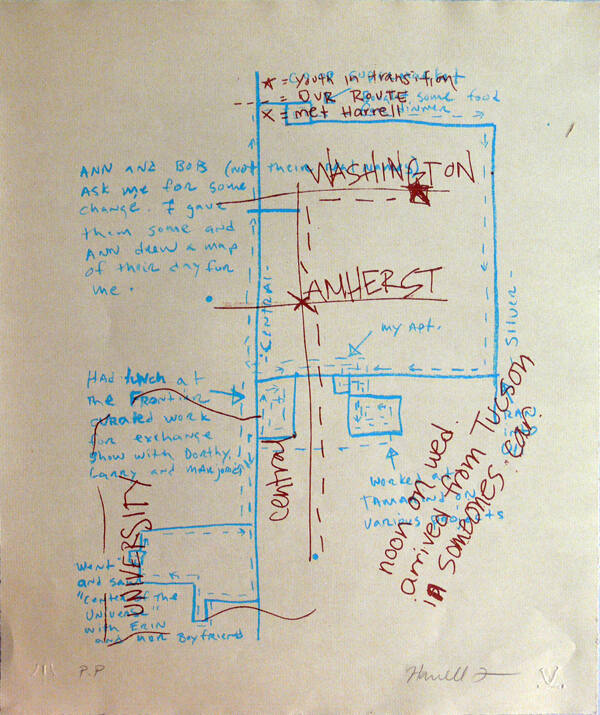 ★ = youth in transition
= OUR ROUTE
some food
X = met Harrell
DINNER
ANN AND BOB (not their real names)
Ask me for some
change. I gave
them some and
ANN drew a map
of their day for
me.
WASHINGTON
AMHERST
-CENTRAL-
SILVER-
my Apt.
HAD lunch at
the FRONTIER
curated work
for exchange
show with Dorothy,
Larry and Marjorie
central
Worked at
TAMARIND on
various projects
noon on wed.
arrived from Tucson
in someones car.
UNIVERSITY
Went
and saw
"Center of the
Universe"
with ERIN
and her Boyfriend
P.P
Harrell